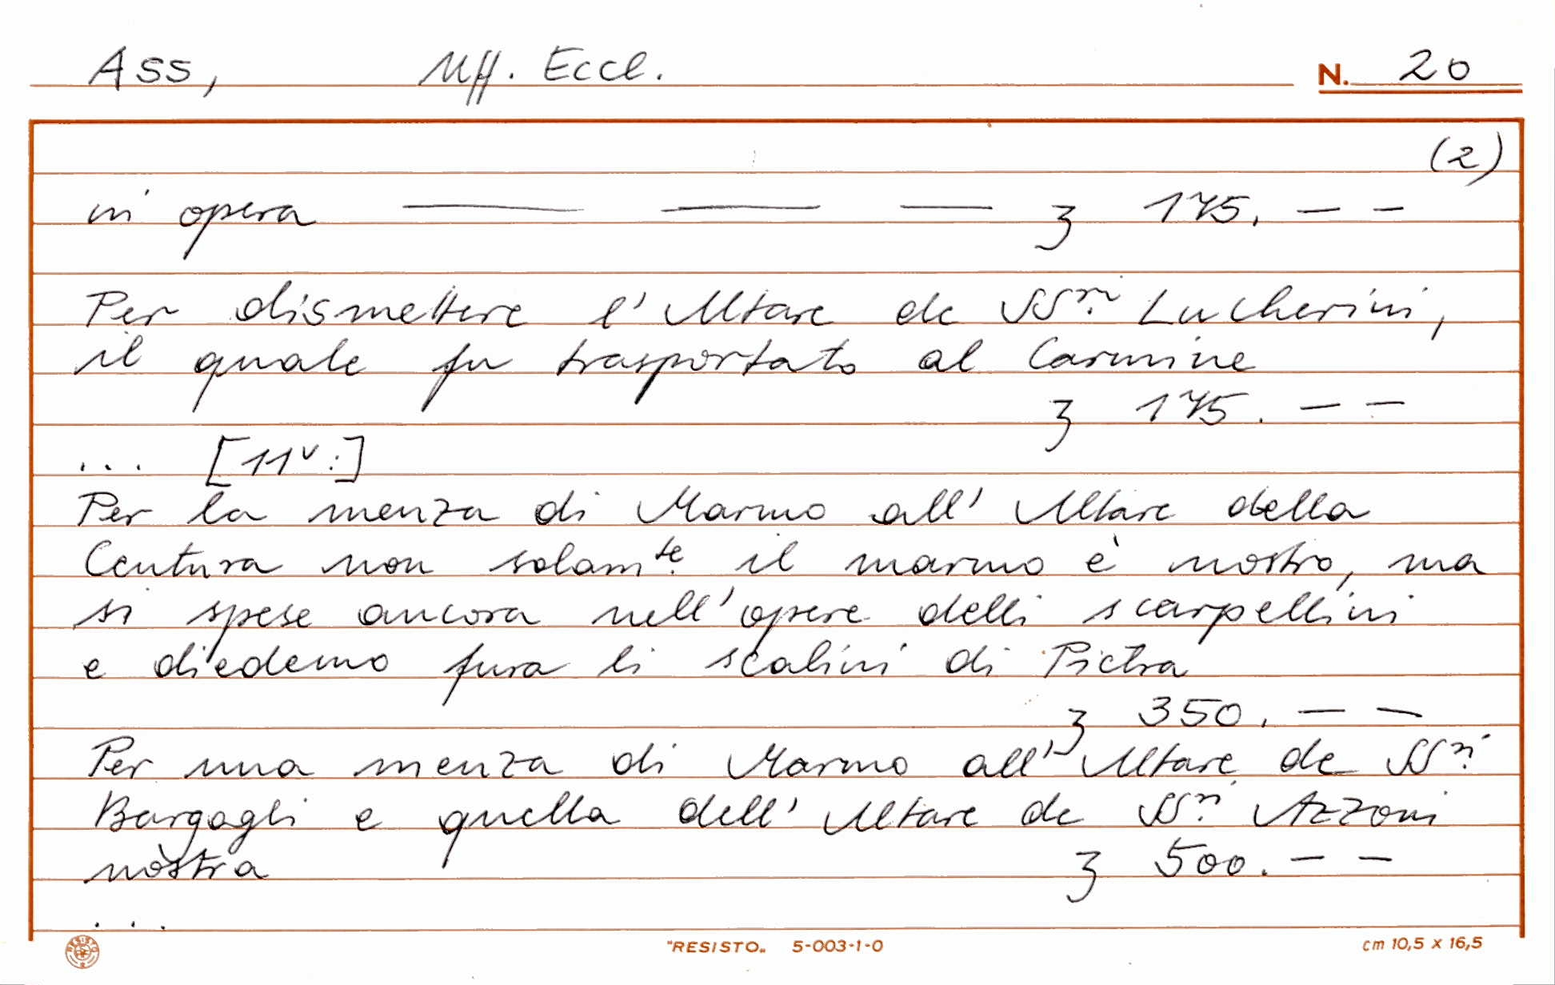 Ass, Uff. Eccl. N. 20
(2)
in opera — — — ʒ 175. — —
Per dismettere l'Altare de SSri. Lucherini,
il quale fu trasportato al Carmine
ʒ 175. — —
... [11v:]
Per la menza di Marmo all'Altare della
Centura non solamte. il marmo è nostro, ma
si spese ancora nell'opere delli scarpellini
e diedemo fura li scalini di Pietra
ʒ 350. — —
Per una menza di Marmo all'Altare de SSri.
Bargagli e quella dell'Altare de SSri. Azzoni
nòstra ʒ 500. — —
...
"RESISTO„ 5-003-1-0 cm 10,5 x 16,5